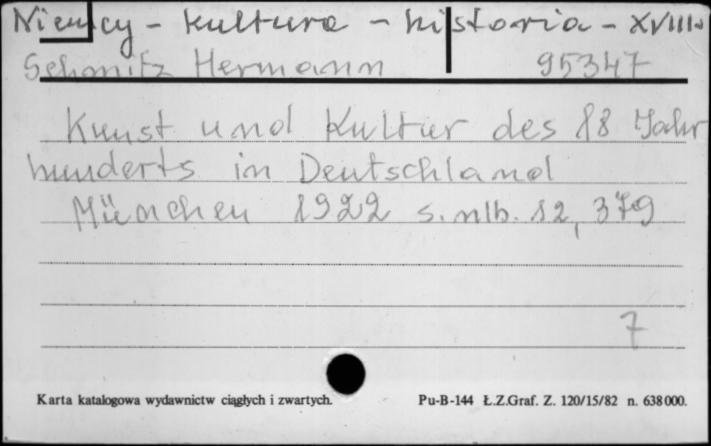 Niemcy - kultura - historia - XVIII w
Schmitz Hermann 95347
Kunst und Kultur des 18 Jahr
hunderts in Deutschland
München 1922 s. nlb. 12, 379
7
Karta katalogowa wydawnictw ciągłych i zwartych. Pu-B-144 Ł.Z.Graf. Z. 120/15/82 n. 638000.